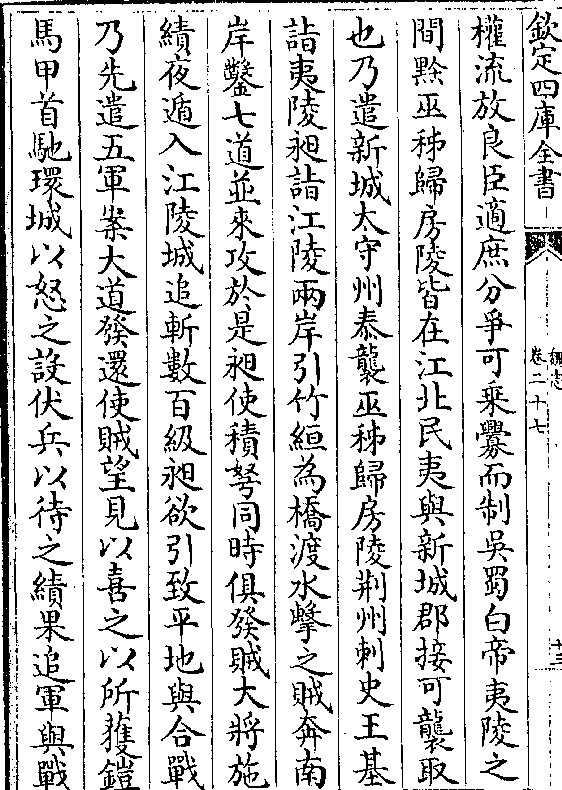 欽定四庫全書
魏志
卷二十七
十三
權流放良臣適庶分爭可乘釁而制吳蜀白帝夷陵之
間黔巫秭歸房陵皆在江北民夷與新城郡接可襲取
也乃遣新城太守州泰襲巫秭歸房陵荆州刺史王基
詣夷陵昶詣江陵兩岸引竹絙為橋渡水擊之賊奔南
岸鑿七道並來攻於是昶使積弩同時俱發賊大將施
績夜遁入江陵城追斬數百級昶欲引致平地與合戰
乃先遣五軍案大道發還使賊望見以喜之以所獲鎧
馬甲首馳環城以怒之設伏兵以待之績果追軍與戰